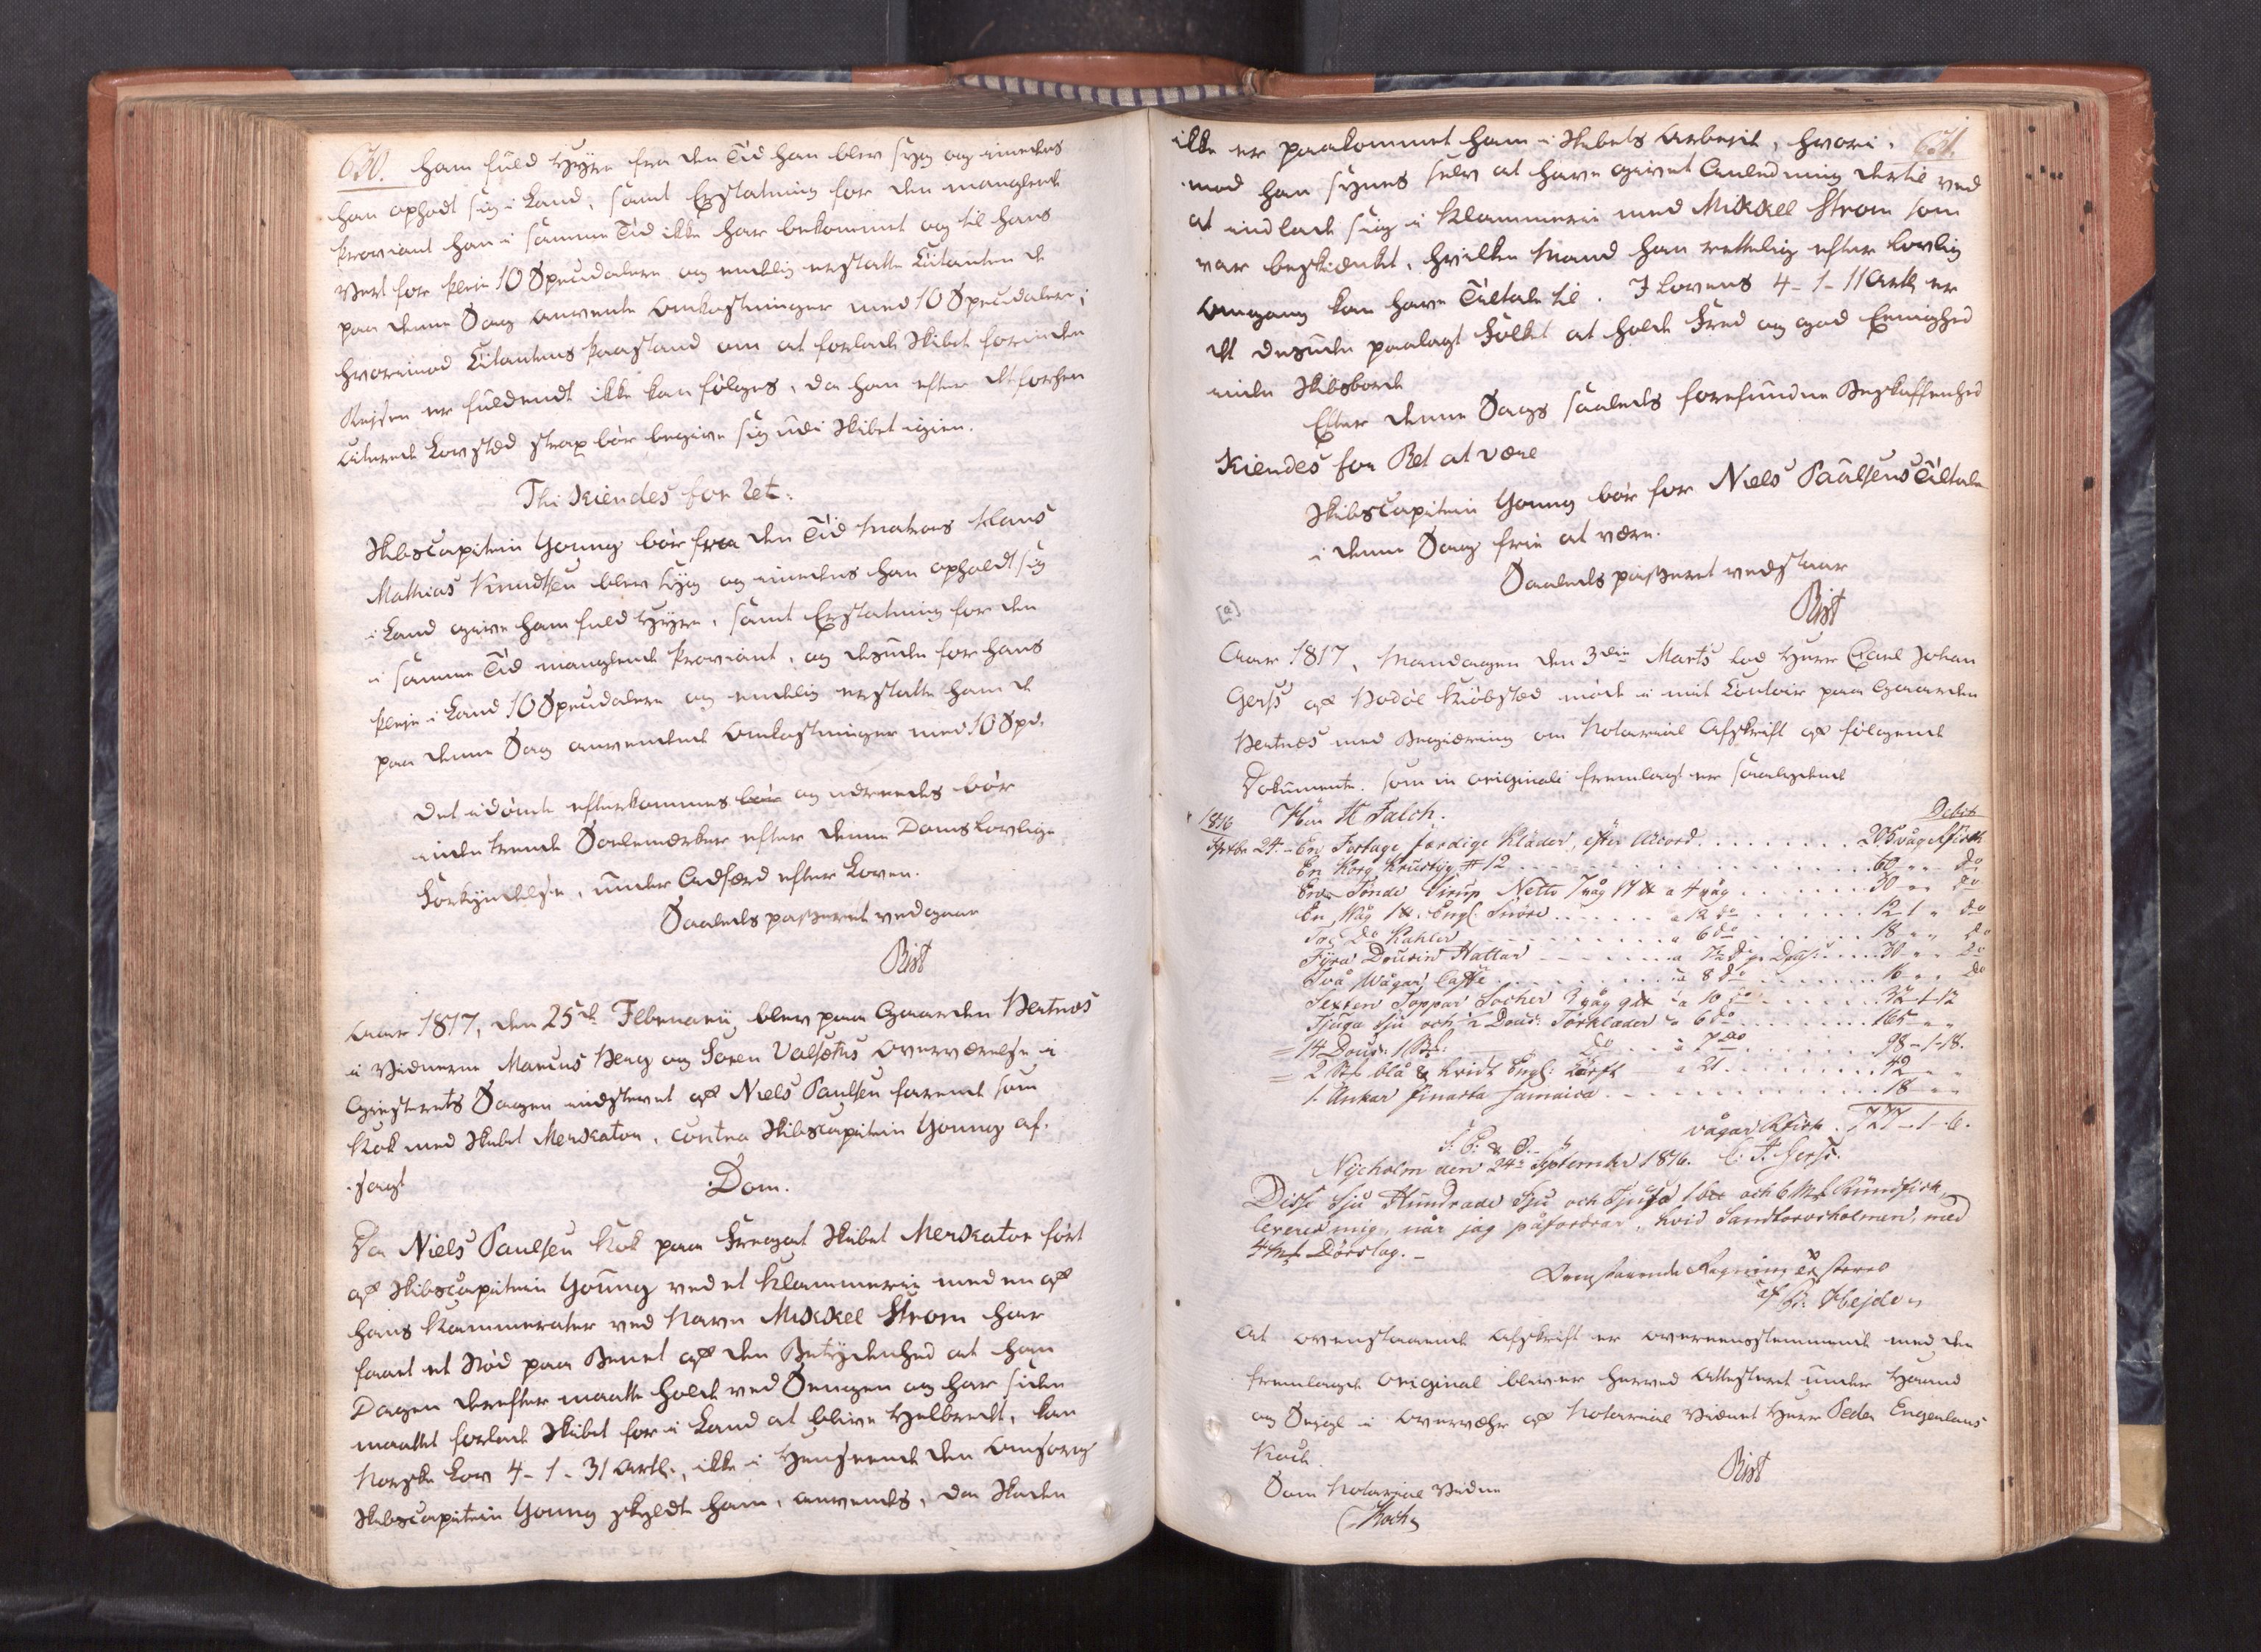 630. ham fuld Hyre fra den Tid han blev syg og imedens
han opholdt sig i Land, samt Erstatning for den manglende
Proviant han i samme Tid ikke har bekommet og til hans
Vert for Pleie 10 Speciedalere og endelig erstatte Citanten de
paa denne Sag anvendte Omkostninger med 10 Speciedaler;
hvorimod Citantens Paastand om at forlade Skibet forinden
Reisen er fuldendt ikke kan følges, da han efter det forhen
citerede Lovsted strax bør begive sig ud i Skibet igien.
Thi kiendes for Ret:
Skibscapitein Young bør fra den Tid Matros Klaus
Mathias Knudtsen blev syg og imedens han opholdt sig
i Land give ham fuld Hyre, samt Erstatning for den
i samme Tid manglende Proviant, og desuden for hans
Pleie i Land 10 Speciedalere og endelig erstatte ham de
paa denne Sag anvendte Omkostninger med 10 Spd.
Det idømte efterkommes bør og udredes bør
inden trende Solemærker efter denne Doms lovlige
Forkyndelse, under Adfærd efter Loven.
Saaledes passeret vedgaar
Rist
Aar 1817, den 25de Februarii blev paa Gaarden Hertnæs
i Vidnerne Marcus Berg og Søren Valsætus Overværelse i
Giesterets Sagen indstevnt af Niels Paulsen farende som
Kok med Skibet Merkator, contra Skibscapitein Young af-
sagt Dom.
Da Niels Paulsen Kok paa Fregat Skibet Merkator ført
af Skibscapitein Young ved et Klammerie med en af
hans Kammerater ved Navn Mikkel Strøm har
faaet et Stød paa Benet af den Betydenhed at han
Dagen derefter maatte holde ved Sengen og har siden
maattet forlade Skibet for i Land at blive helbredet, kan
Norske Lov 4-1-31 Artl., ikke i Henseende den Omsorg
Skibscapitein Young skyldte ham, anvendes, da Skaden
ikke er paakommet ham i Skibets Arbejde, hvori- 631.
mod han synes selv at have givet Anledning dertil ved
at indlade sig i Klammerie med Mikkel Strøm som
var beskienket, hvilken Mand han rettelig efter lovlig
Omgang kan have Tiltale til. I Lovens 4-1-11 Artl. er
det desuden paalagt Folket at holde Fred og god Eenighed
inden Skibsborde
Efter denne Sags saaledes forefundne Beskaffenhed
Kiendes for Ret at være
Skibscapitein Young bør for Niels Paulsens Tiltale
i denne Sag frie at være.
Saaledes passeret vedstaar
Rist
[a]
Aar 1817, Mandagen den 3die Marts lod Herr Carl Johan
Gerss af Bodøe Kiøbsted møde i mit Contoir paa Gaarden
Hertnæs med Begiering om Notarial Afskrift af følgende
Dokument. som in originali fremlagt er saalydende
1816 Herr H Falch. Debet
Septbr 24 - En Fostage færdige Kläder, efter Accord . . . 205 våg Rfisk
En Korg Krustÿg # 12 . . . 60 " " do
En Tönde Sirup Netto 7 våg 17 ℔ a 4 våg . . . 30 " " do
En Wåg 1 ℔ Engl. Snöre . . . a 12 do . . . 12-1 " do
Tre do Kahler . . . a 6 do . . . 18 " " do
Fÿra Dousin Hattar . . . a 7½ do pr Dous: . . . 30 " " do
Två Wågar Caffe . . . a 8 do . . . 16 " " do
Sexten Toppar Socker 3 våg 9 ℔ a 10 do . . . 32-1-12
Tjuga sju och ½ Dous: Törklæder a 6 do . . . 165 " "
14 Dous: 1 St: do . . . a 7 do . . . 98-1-18.
2 St blå & hvidt Engl: Lärft a 21 . . . 42 " "
1 Ankar finasta Jamaica . . . 18 " "
vågar Rfisk . 727-1-6.
S. E. & O.
Nyeholm den 24de September 1816. C: J. Gerss.
Disse sju Hundrade sju och Tjugo 1 bn och 6 Mk Rundfisk,
leverer mig, når jag påfordrar, hvid Sandtorvsholmen, med
4 Mk Dörslag. -
Ovenstaaende Regning er stevet
af Hejde
At ovenstaaende Afskrift er overeensstemmende med den
fremlagde Original bliver herved attesteret under Haand
og Seigl i Overvær af Notarial Vidnet Herr Peder Engenlaus
Koch.
Rist
Som Notarial Vidne
Koch